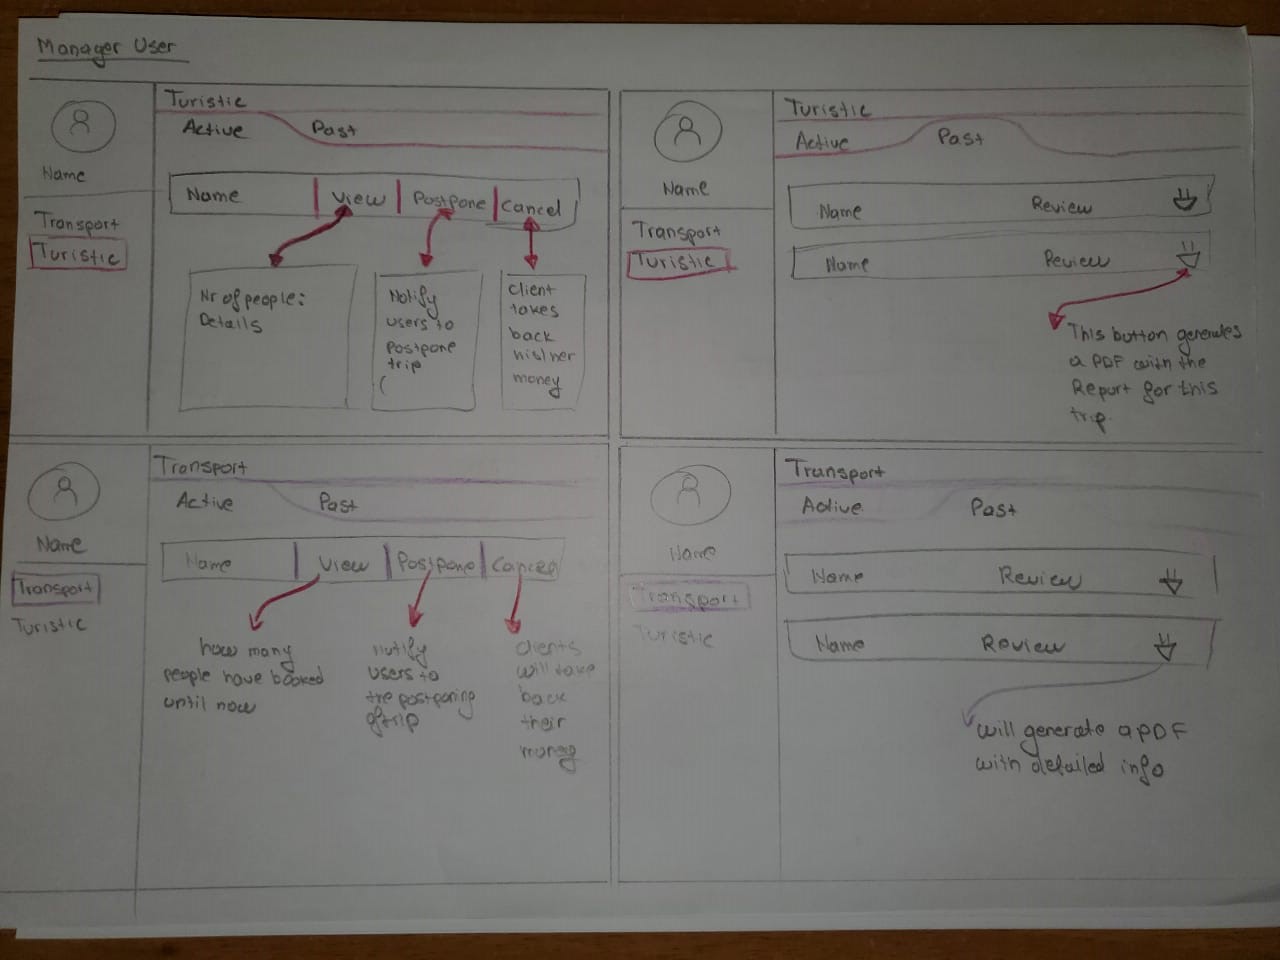 Manager User
Name
Transport
Turistic
Turistic
Active Past
Name View Postpone Cancel
Nr of people:
Details
Notify
users to
postpone
trip
(
client
takes
back
his/her
money
Name
Transport
Turistic
Turistic
Active Past
Name Review
Name Review
This button generates
a PDF with the
Report for this
trip.
Name
Transport
Turistic
Transport
Active Past
Name View Postpone Cancel
how many
people have booked
until now
Notify
users to
the postponing
of trip
clients
will take
back
their
money
Name
Transport
Turistic
Transport
Active Past
Name Review
Name Review
will generate a PDF
with detailed info